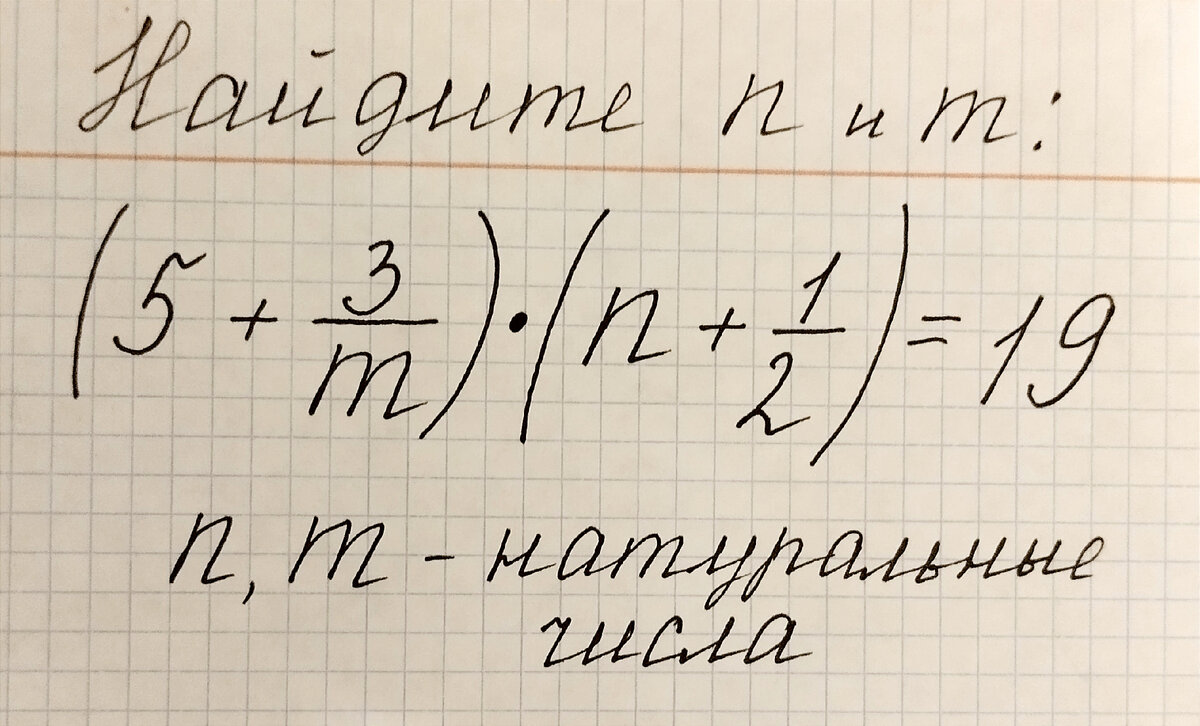 Найдите n и m:
(5 + 3/m) · (n + 1/2) = 19
n, m - натуральные
числа